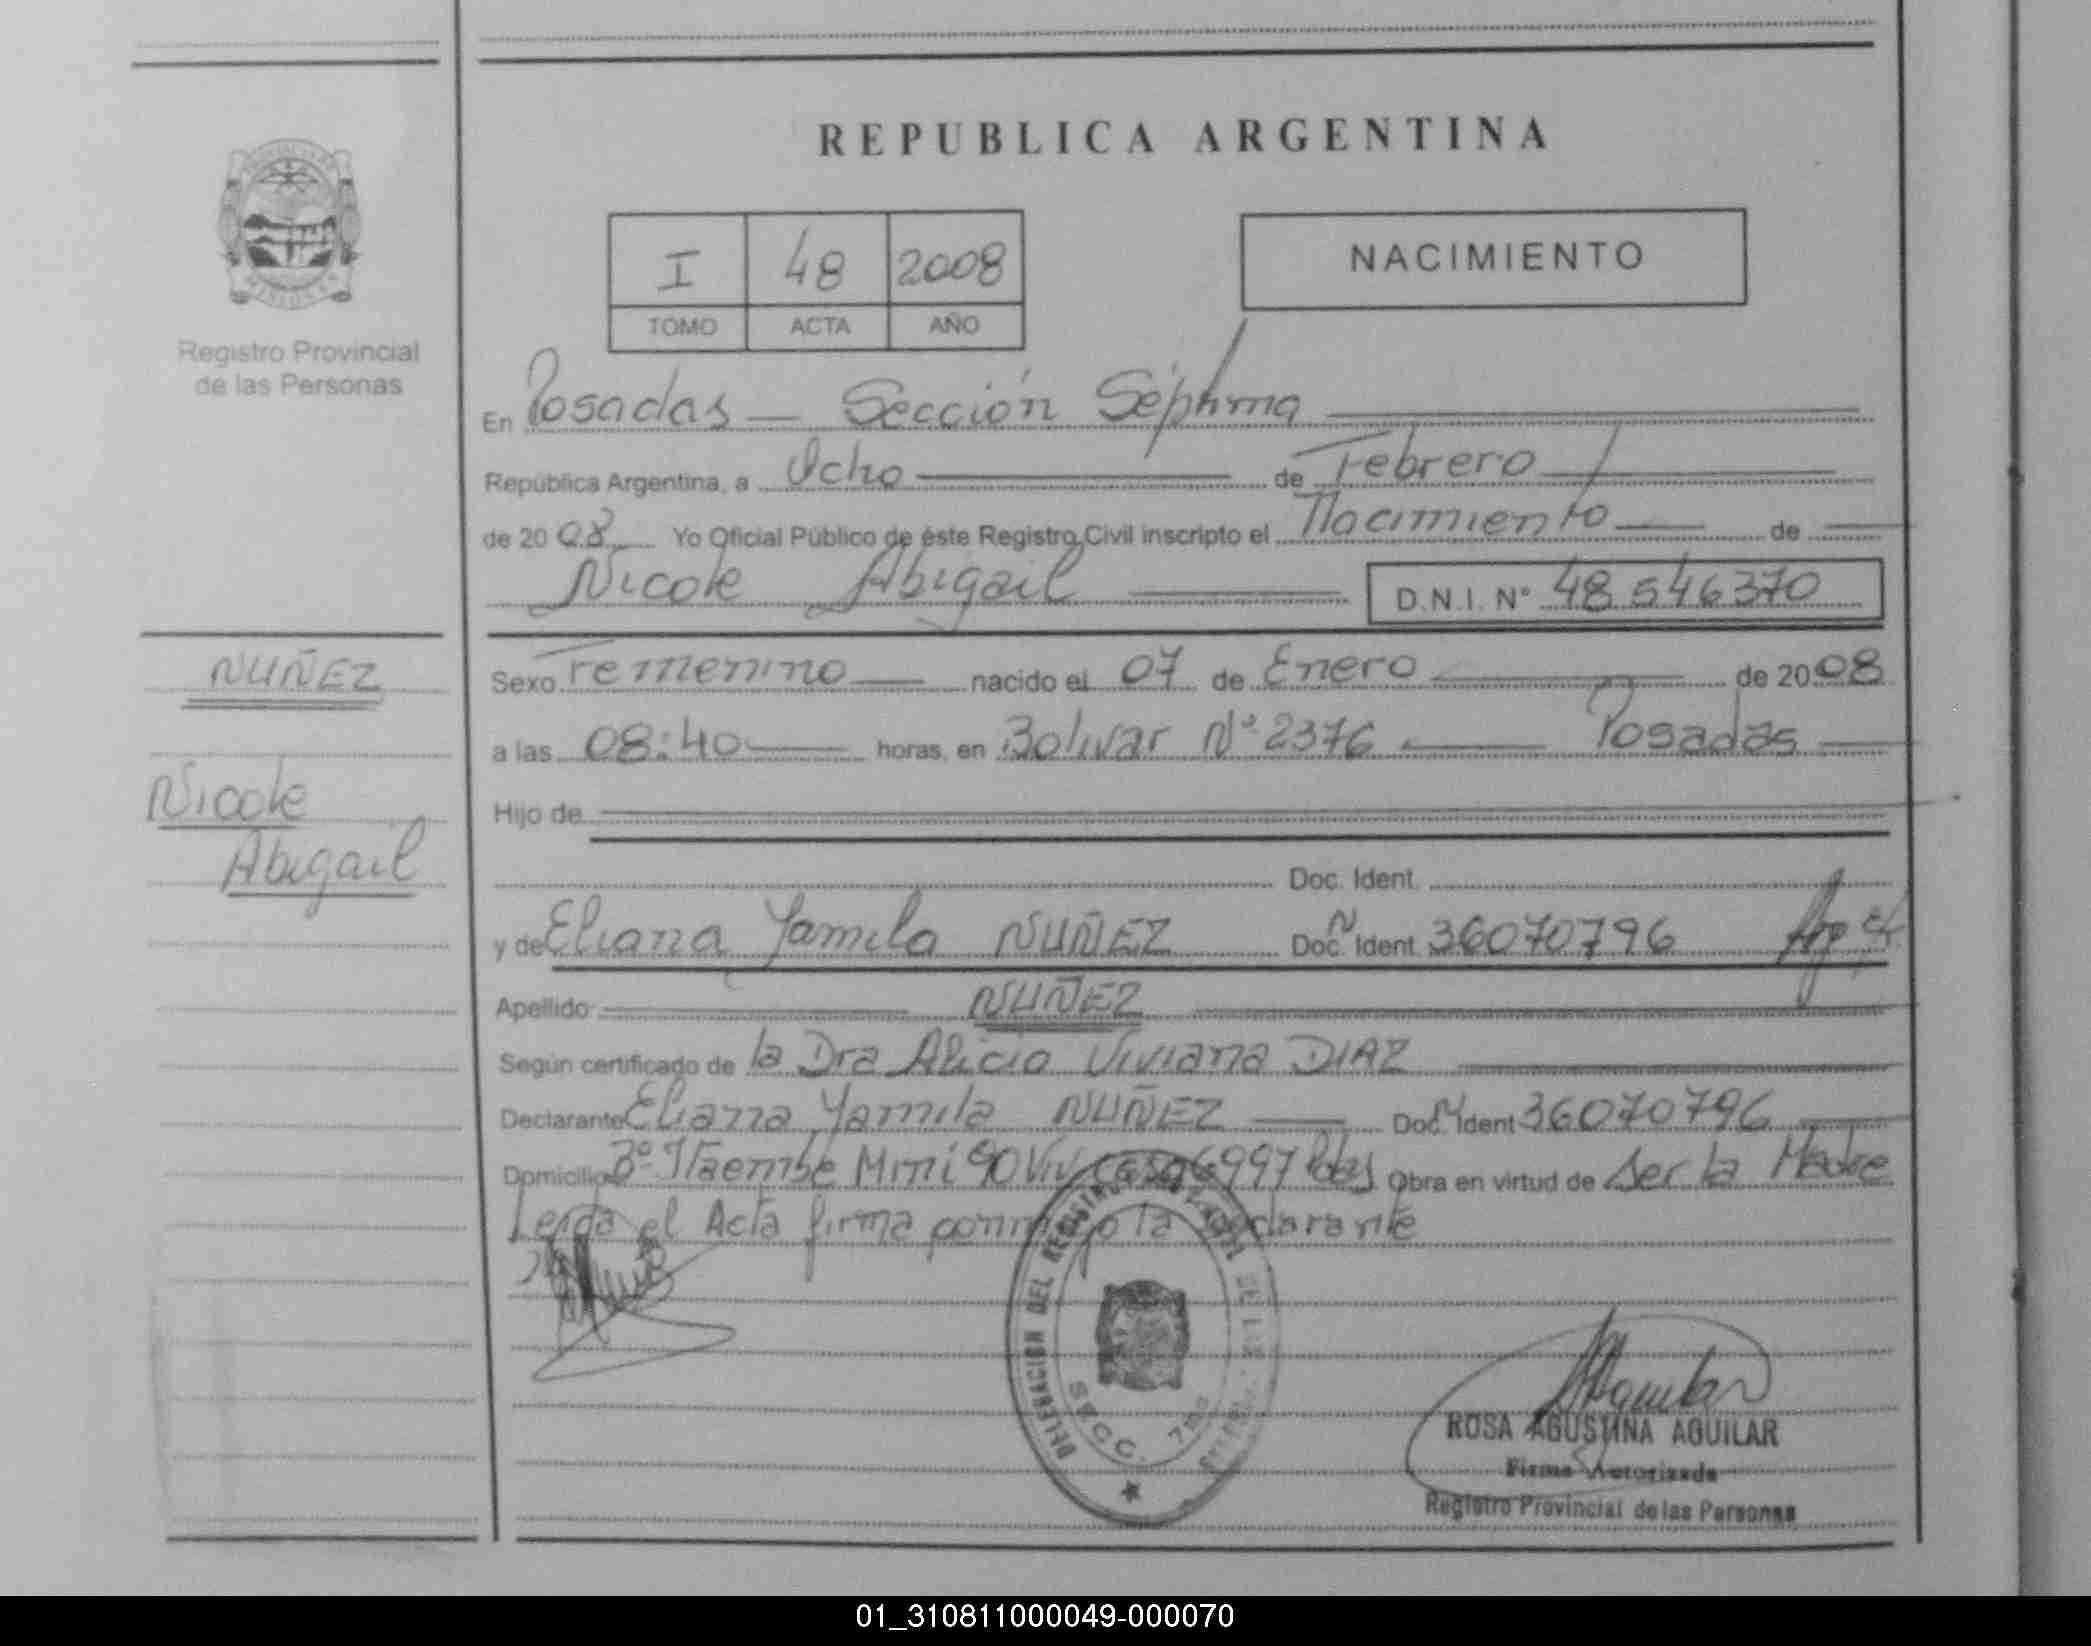 REPUBLICA ARGENTINA
I 48 2008
TOMO ACTA AÑO
NACIMIENTO
Registro Provincial
de las Personas
En Posadas — Sección Séptima
República Argentina, a Ocho de Febrero
de 2008 Yo Oficial Público de éste Registro Civil inscripto el Nacimiento de
Nicole Abigail D.N.I. N° 48546370
NUÑEZ
Nicole
Abigail
Sexo Femenino nacido el 07 de Enero de 2008
a las 08:40 horas, en Bolivar N° 2376 Posadas
Hijo de
Doc. Ident.
y de Eliana Yamila NUÑEZ Doc. Ident. 36070796
Apellido NUÑEZ
Según certificado de la Dra Alicia Viviana DIAZ
Declarante Eliana Yamila NUÑEZ Doc. Ident 36070796
Domicilio B° Itaembe Mini 90 Viv casa 6997 Pdas Obra en virtud de ser la Madre
Leida el Acta firma conmigo la declarante
DELEGACION DEL REGISTRO PROVINCIAL DE LAS
SECC. 7ma
ROSA AGUSTINA AGUILAR
Firma Autorizada
Registro Provincial de las Personas
01_310811000049-000070